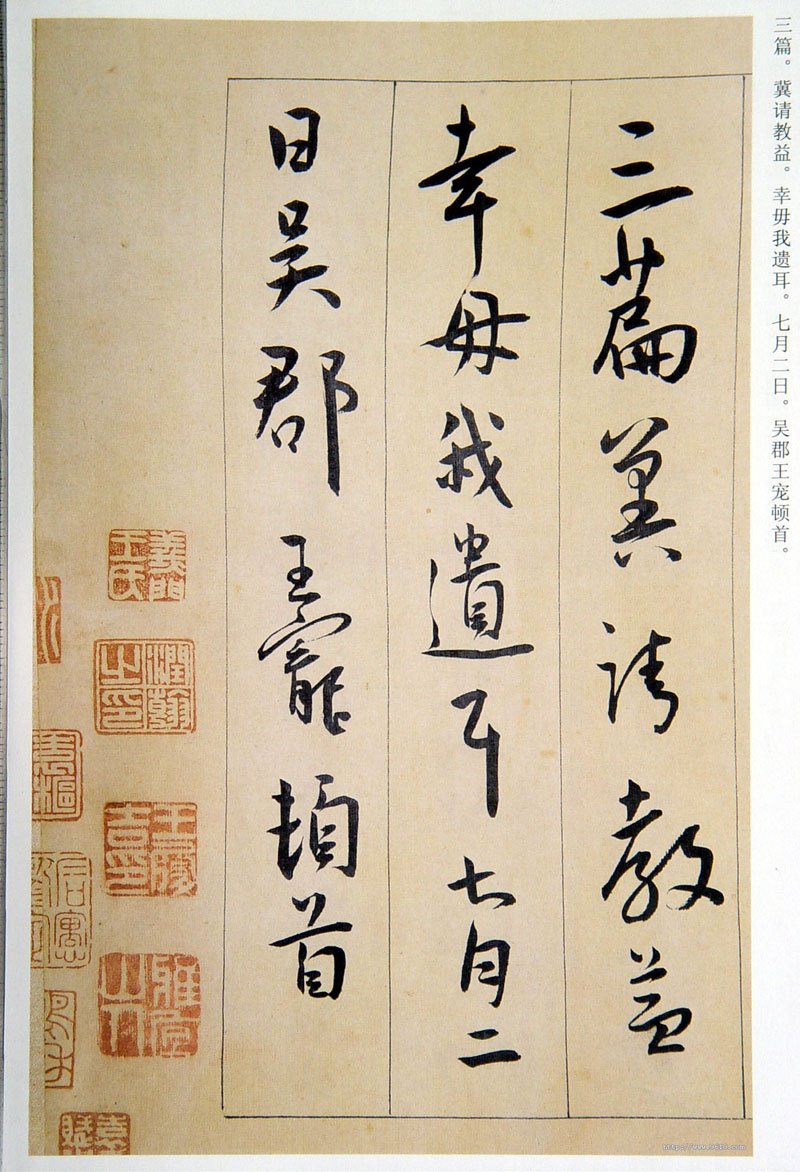 三篇。冀请教益。幸毋我遗耳。七月二日。吴郡王宠顿首。
三萹冀請教益
幸毋我遺耳七月二
日吳郡王寵頓首